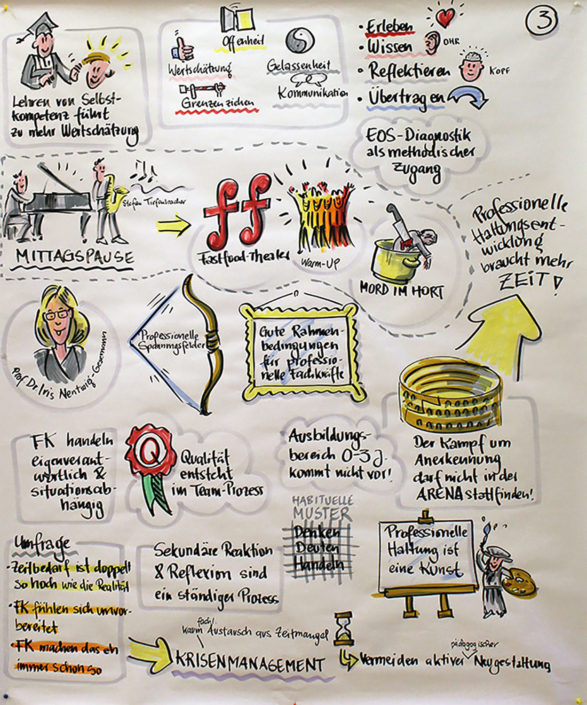 3
Lehren von Selbst-
kompetenz führt
zu mehr Wertschätzung
Offenheit
Wertschätzung
Gelassenheit
Grenzen ziehen
Kommunikation
• Erleben
• Wissen
OHR
• Reflektieren
KOPF
• Übertragen
EOS-Diagnostik
als methodischer
Zugang
Stefan Tiefenbacher
MITTAGSPAUSE
ff
Fastfood-Theater
Warm-up
MORD IM HORT
Professionelle
Haltungsent-
wicklung
braucht mehr
ZEIT!
Prof. Dr. Iris Nentwig-Gesemann
Professionelle
Spannungsfelder
Gute Rahmen-
bedingungen
für professio-
nelle Fachkräfte
FK handeln
eigenverant-
wortlich &
situationsab-
hängig
Q
Qualität
entsteht
im Team-Prozess
• Ausbildungs-
bereich 0-3 J.
kommt nicht vor!
Der Kampf um
Anerkennung
darf nicht in der
ARENA stattfinden!
Umfrage
• Zeitbedarf ist doppelt
so hoch wie die Realität
• FK fühlen sich unvor-
bereitet
• FK machen das eh
immer schon so
Sekundäre Reaktion
& Reflexion sind
ein ständiger Prozess
HABITUELLE
MUSTER
Denken
Deuten
Handeln
Professionelle
Haltung ist
eine Kunst
fachl.
kaum Austausch aus Zeitmangel
KRISENMANAGEMENT
pädagogischer
Vermeiden aktiver Neugestaltung